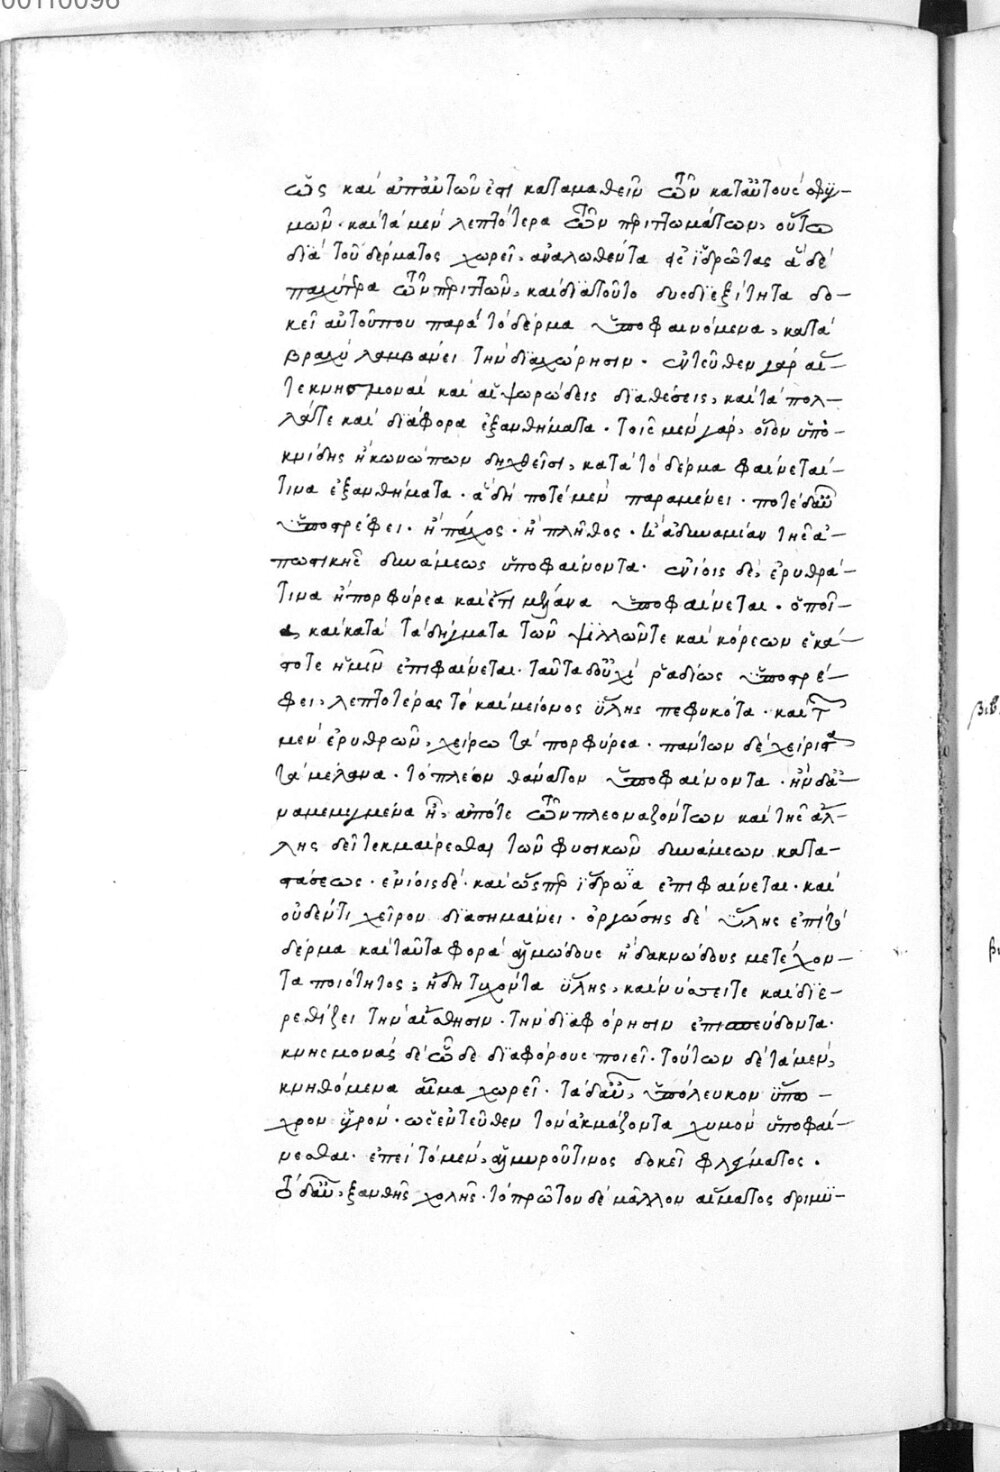 00110098
ως καὶ ἀπ' αὐτῶν ἐστι καταμαθεῖν τῶν κατ' αὐτοὺς σφυγ-
μῶν· καὶ τὰ μὲν λεπτότερα τῶν περιττωμάτων, οὕτω
διὰ τοῦ δέρματος χωρεῖ, ἀναλωθέντα εἰς ἱδρῶτας ἃ δὲ
παχύτερα τῶν περιττῶν, καὶ διὰ τοῦτο δυσδιεξίτητα δο-
κεῖ αὐτοῦ που παρὰ τὸ δέρμα ὑποφαινόμενα, κατὰ
βραχὺ λαμβάνει τὴν διαχώρησιν· ἐντεῦθεν γὰρ αἵ-
τε κνησμοναὶ καὶ αἱ ψωρώδεις διαθέσεις, καὶ τὰ πολ-
λά τε καὶ διάφορα ἐξανθήματα· τοῖς μὲν γὰρ, οἷον ὑπὸ
κνίδης ἢ κωνώπων δηχθεῖσι, κατὰ τὸ δέρμα φαίνεταί
τινα ἐξανθήματα· ἃ δή ποτε μὲν παραμένει· ποτὲ δ' αὖ
ὑποστρέφει· ἢ πάχος· ἢ πλῆθος· ἢ ἀδυναμίαν τῆς ἀ-
πωστικῆς δυνάμεως ὑποφαίνοντα· ἐνίοις δὲ, ἐρυθρά
τινα ἢ πορφύρεα καὶ ἔτι μέλανα ὑποφαίνεται· ὁποῖ-
α καὶ κατὰ τὰ δήγματα τῶν ψυλλῶν τε καὶ κόρεων ἑκά-
στοτε ἡμῖν ἐπιφαίνεται· ταῦτα δ' οὐχὶ ῥᾳδίως ὑποστρέ-
φει, λεπτοτέρας τὲ καὶ μείονος ὕλης πεφυκότα· καὶ τῶν
μὲν ἐρυθρῶν, χείρω τὰ πορφύρεα· πάντων δὲ χείριστα
τὰ μέλανα· τὸ πλέον θάνατον ὑποφαίνοντα· ἢν δ' ἀ-
ναμεμιγμένα ᾖ, ἀπό τε τῶν πλεοναζόντων καὶ τῆς ἄλ-
λης δεῖ τεκμαίρεσθαι τῶν φυσικῶν δυνάμεων κατα-
στάσεως· ἐνίοις δὲ· καὶ ὥσπερ ἱδρῶα ἐπιφαίνεται· καὶ
οὐδέν τι χεῖρον διασημαίνει· ὀργώσης δὲ ὕλης ἐπὶ τὸ
δέρμα καὶ ταῦτα φορᾷ ἁλμώδους ἢ δακνώδους μετέχον-
τα ποιότητος; ἤδη τυχόντα ὕλης, καὶ νύττει τε καὶ διε-
ρεθίζει τὴν αἴσθησιν· τὴν διαφόρησιν ἐπισπεύδοντα·
κνησμονὰς δὲ ὧδε διαφόρους ποιεῖ· τούτων δὲ τὰ μὲν,
κνηθόμενα αἷμα χωρεῖ· τὰ δ' αὖ, ὑπόλευκον ὕπω-
χρον ὑγρόν· ὡς ἐντεῦθεν τὸν ἀκμάζοντα χυμὸν ὑποφαί-
νεσθαι· ἐπεὶ τὸ μὲν, ἁλμυροῦ τινος δοκεῖ φλέγματος·
τὸ δ' αὖ, ξανθῆς χολῆς· τὸ πρῶτον δὲ μᾶλλον αἵματος δριμύ-